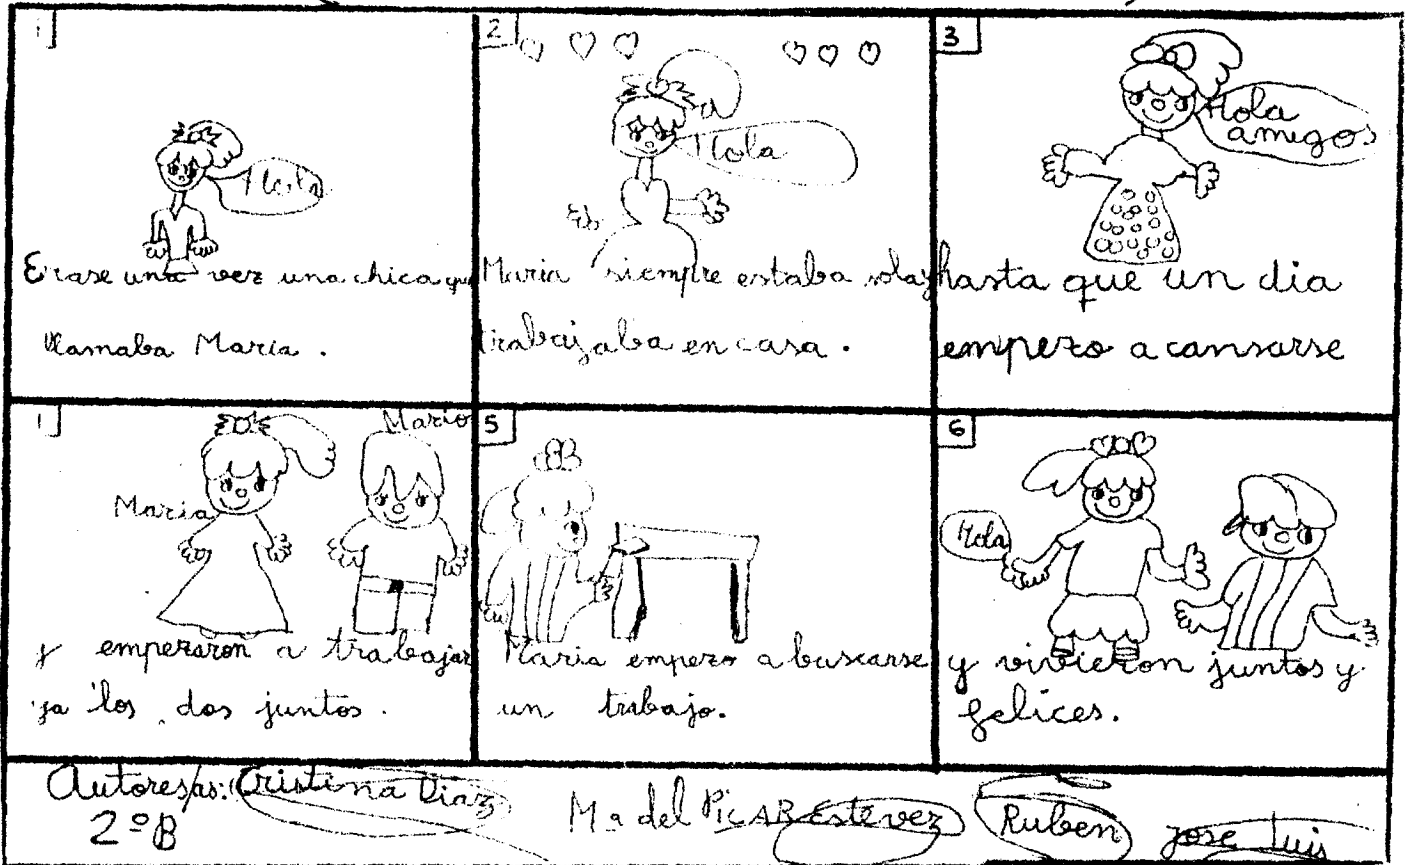 1
Hola
Erase una vez una chica que
llamaba Maria.
2
Hola
Maria siempre estaba sola y
trabajaba en casa.
3
Hola
amigos
hasta que un dia
empezo a cansarse
Mario
Maria
y empezaron a trabajar
ya los dos juntos.
5
Maria empezo a buscarse
un trabajo.
6
Hola
y vivieron juntos y
felices.
Autores/as: Cristina Diaz
2ºB
Mª del Estevez
Ruben
Jose Luis